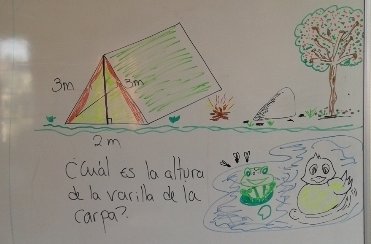 3m 3m
2m
¿Cuál es la altura
de la varilla de la
carpa?